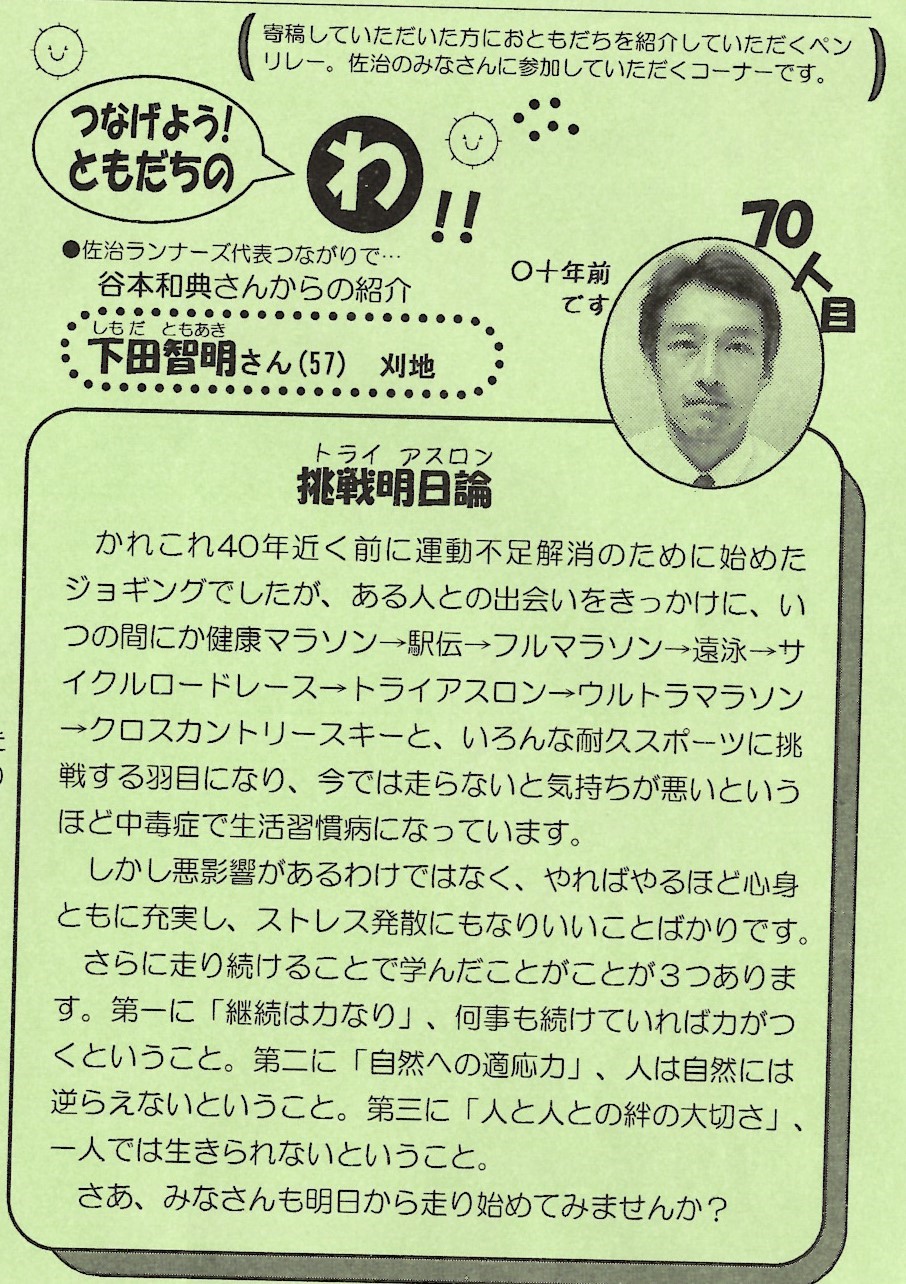 寄稿していただいた方におともだちを紹介していただくペン
リレー。佐治のみなさんに参加していただくコーナーです。
つなげよう!
ともだちの
わ!!
●佐治ランナーズ代表つながりで…
谷本和典さんからの紹介
しもだ ともあき
下田智明さん(57) 刈地
〇十年前
です
70人目
トライ アスロン
挑戦明日論
かれこれ40年近く前に運動不足解消のために始めた
ジョギングでしたが、ある人との出会いをきっかけに、い
つの間にか健康マラソン→駅伝→フルマラソン→遠泳→サ
イクルロードレース→トライアスロン→ウルトラマラソン
→クロスカントリースキーと、いろんな耐久スポーツに挑
戦する羽目になり、今では走らないと気持ちが悪いという
ほど中毒症で生活習慣病になっています。
しかし悪影響があるわけではなく、やればやるほど心身
ともに充実し、ストレス発散にもなりいいことばかりです。
さらに走り続けることで学んだことがことが3つありま
す。第一に「継続は力なり」、何事も続けていれば力がつ
くということ。第二に「自然への適応力」、人は自然には
逆らえないということ。第三に「人と人との絆の大切さ」、
一人では生きられないということ。
さあ、みなさんも明日から走り始めてみませんか?